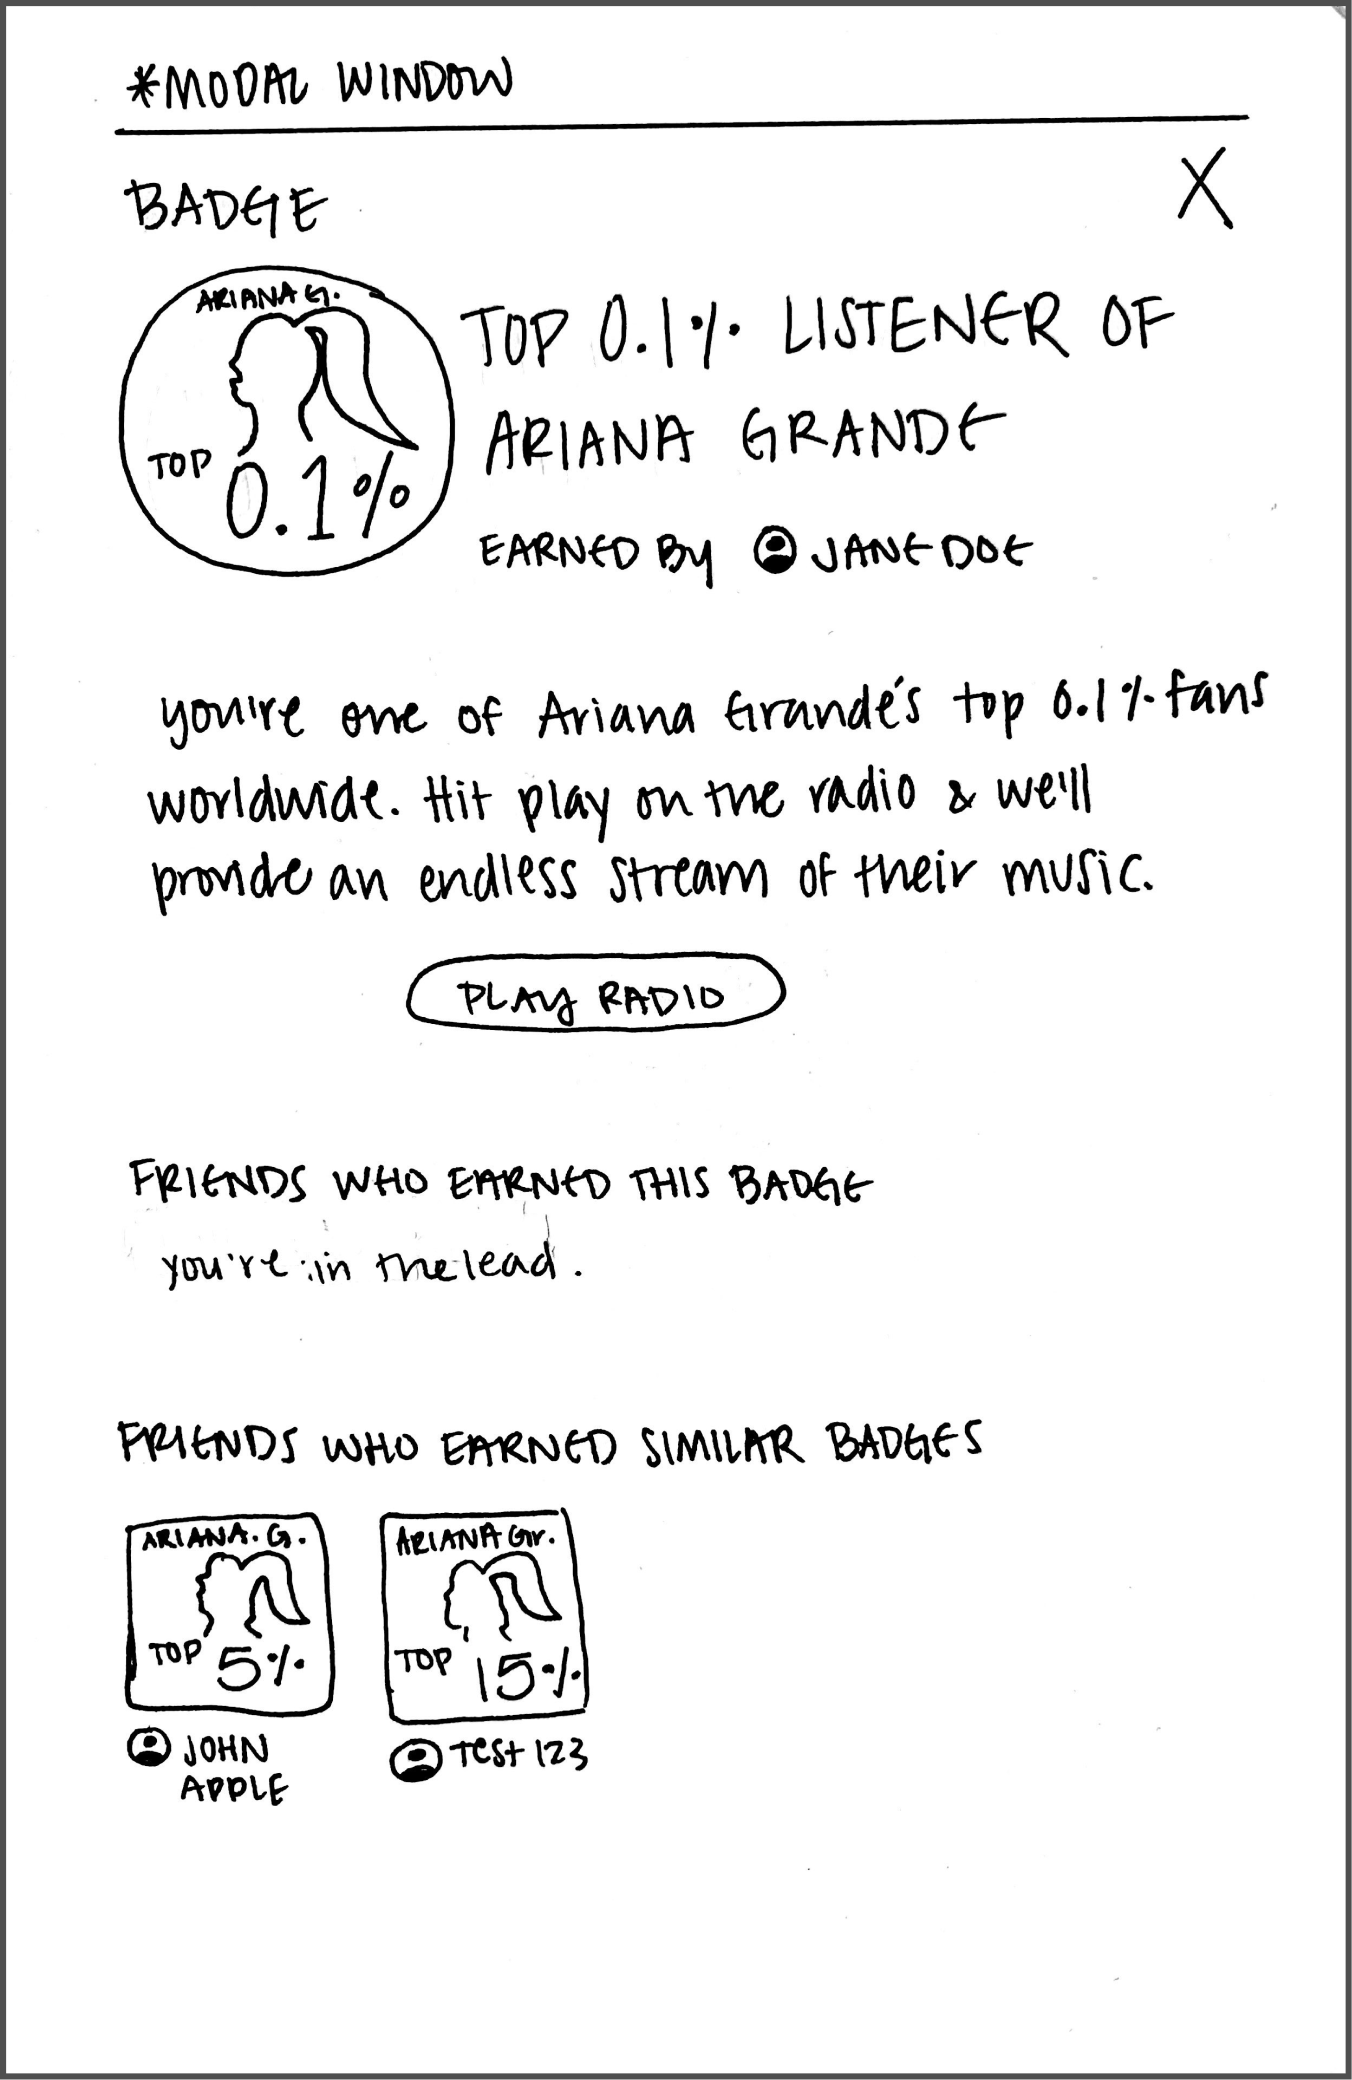 *MODAL WINDOW
BADGE
X
ARIANA G.
TOP
0.1%
TOP 0.1% LISTENER OF
ARIANA GRANDE
EARNED By JANE DOE
you're one of Ariana Grande's top 0.1% fans
worldwide. Hit play on the radio & we'll
provide an endless stream of their music.
PLAY RADIO
FRIENDS WHO EARNED THIS BADGE
you're in the lead.
FRIENDS WHO EARNED SIMILAR BADGES
ARIANA. G.
TOP 5%
JOHN
APPLE
ARIANA Gr.
TOP 15%
Test 123